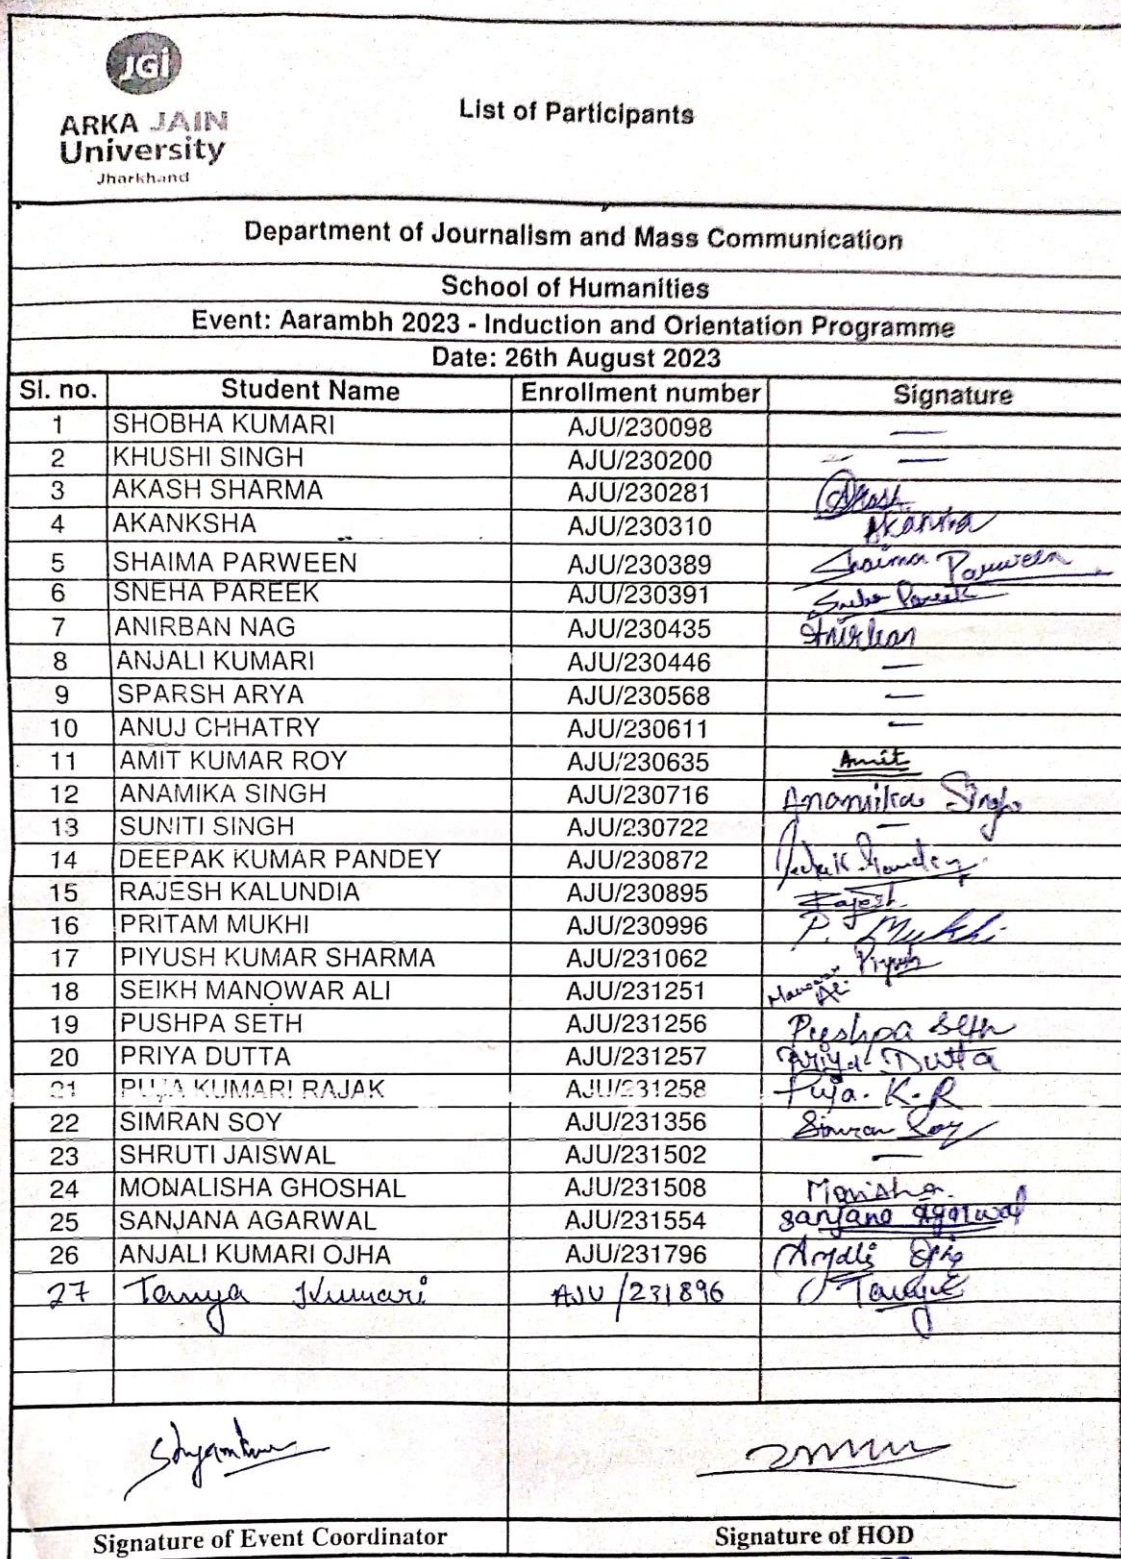 JGi
ARKA JAIN
University
Jharkhand
List of Participants
Department of Journalism and Mass Communication
School of Humanities
Event: Aarambh 2023 - Induction and Orientation Programme
Date: 26th August 2023
Sl. no. Student Name Enrollment number Signature
1 SHOBHA KUMARI AJU/230098 —
2 KHUSHI SINGH AJU/230200 — —
3 AKASH SHARMA AJU/230281 Akash
4 AKANKSHA AJU/230310
5 SHAIMA PARWEEN AJU/230389 Shaima Parween
6 SNEHA PAREEK AJU/230391 Sneha Pareek
7 ANIRBAN NAG AJU/230435 Anirban
8 ANJALI KUMARI AJU/230446 —
9 SPARSH ARYA AJU/230568 —
10 ANUJ CHHATRY AJU/230611 —
11 AMIT KUMAR ROY AJU/230635 Amit
12 ANAMIKA SINGH AJU/230716 Anamika Singh
13 SUNITI SINGH AJU/230722 —
14 DEEPAK KUMAR PANDEY AJU/230872
15 RAJESH KALUNDIA AJU/230895 Rajesh
16 PRITAM MUKHI AJU/230996 P. Mukhi
17 PIYUSH KUMAR SHARMA AJU/231062 Piyush
18 SEIKH MANOWAR ALI AJU/231251 Manowar Ali
19 PUSHPA SETH AJU/231256 Pushpa Seth
20 PRIYA DUTTA AJU/231257 Priya Dutta
21 PUJA KUMARI RAJAK AJU/231258 Puja. K. R
22 SIMRAN SOY AJU/231356 Simran Soy
23 SHRUTI JAISWAL AJU/231502 —
24 MONALISHA GHOSHAL AJU/231508
25 SANJANA AGARWAL AJU/231554 Sanjana Agarwal
26 ANJALI KUMARI OJHA AJU/231796 Anjali Ojha
27 Tanya Kumari AJU/231896
Signature of Event Coordinator Signature of HOD